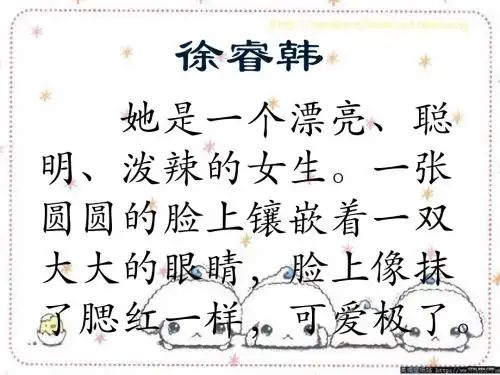 徐睿韩
她是一个漂亮、聪
明、泼辣的女生。一张
圆圆的脸上镶嵌着一双
大大的眼睛，脸上像抹
了腮红一样，可爱极了。